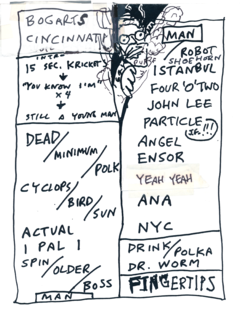 BOGARTS
CINCINNATI
15 SEC. KRICKET
YOU KNOW I'M
x 4
STILL A YOUNG MAN
DEAD/
MINIMUM/
POLK
CYCLOPS/
BIRD/
SUN
ACTUAL
1 PAL 1
SPIN/
OLDER/
BOSS
MAN
MAN
ROBOT
SHOEHORN
ISTANBUL
FOUR 'O' TWO
JOHN LEE
PARTICLE
IS!!!
ANGEL
ENSOR
YEAH YEAH
ANA
NYC
DRINK/POLKA
DR. WORM
FINGERTIPS